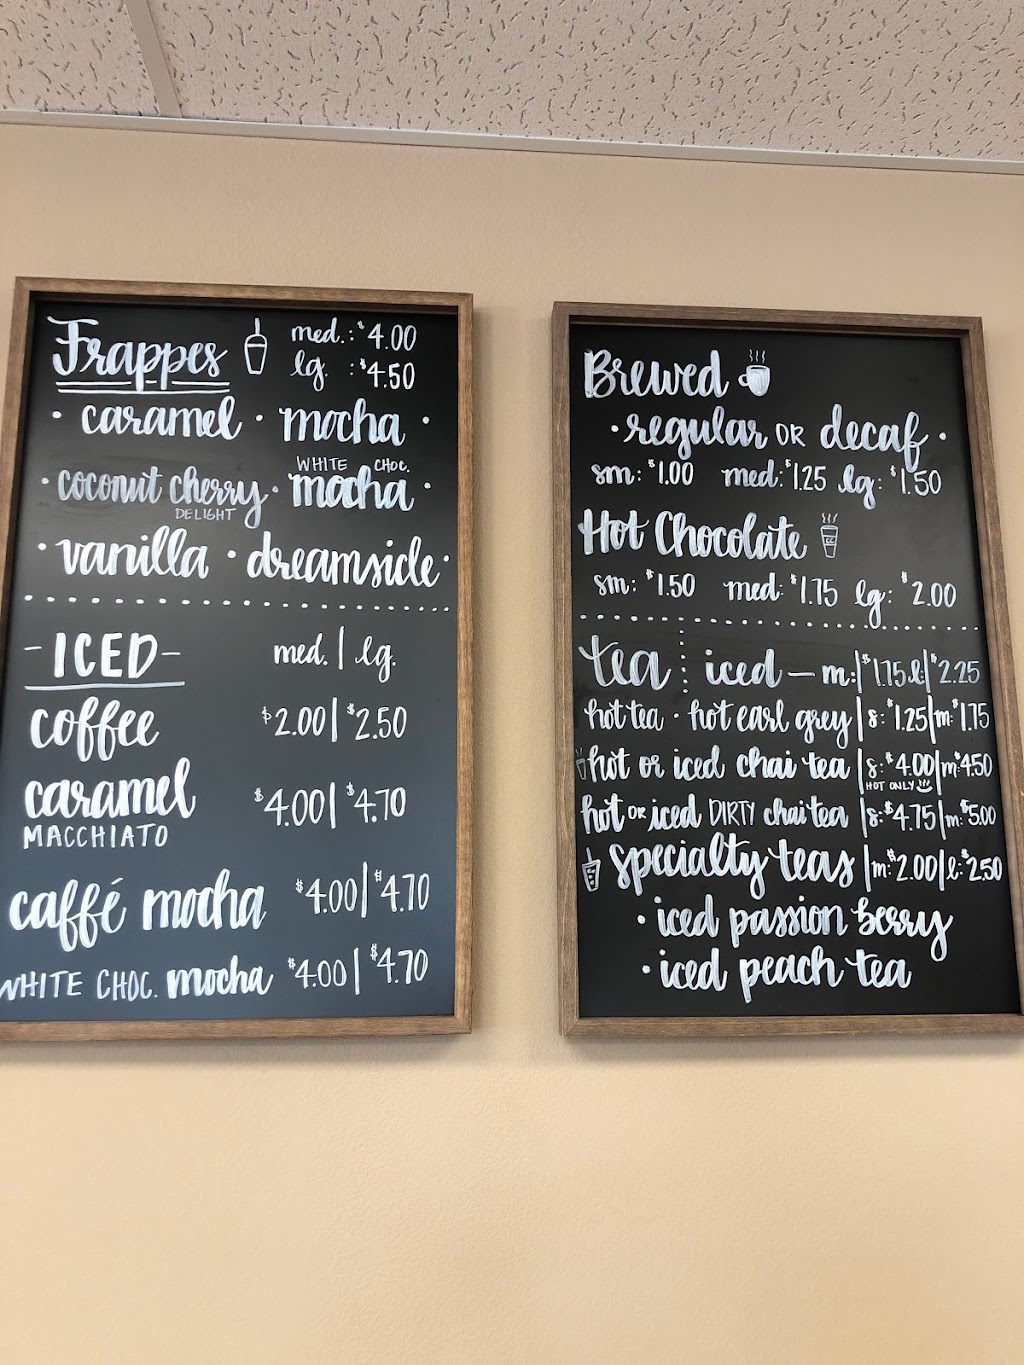 Frappes med.: $4.00
lg. : $4.50
· caramel · mocha ·
· coconut cherry DELIGHT · WHITE CHOC. mocha ·
· vanilla · dreamsicle ·
- ICED - med. | lg.
coffee $2.00 | $2.50
caramel $4.00 | $4.70
MACCHIATO
caffé mocha $4.00 | $4.70
WHITE CHOC. mocha $4.00 | $4.70
Brewed
· regular OR decaf ·
sm: $1.00 med: $1.25 lg: $1.50
Hot Chocolate
sm: $1.50 med: $1.75 lg: $2.00
tea iced — m: | $1.75 l: | $2.25
hot tea · hot earl grey | s: $1.25 | m: $1.75
hot or iced chai tea | s: $4.00 | m: $4.50
HOT ONLY
hot OR iced DIRTY chai tea | s: $4.75 | m: $5.00
specialty teas | m: $2.00 | l: $2.50
· iced passion berry
· iced peach tea